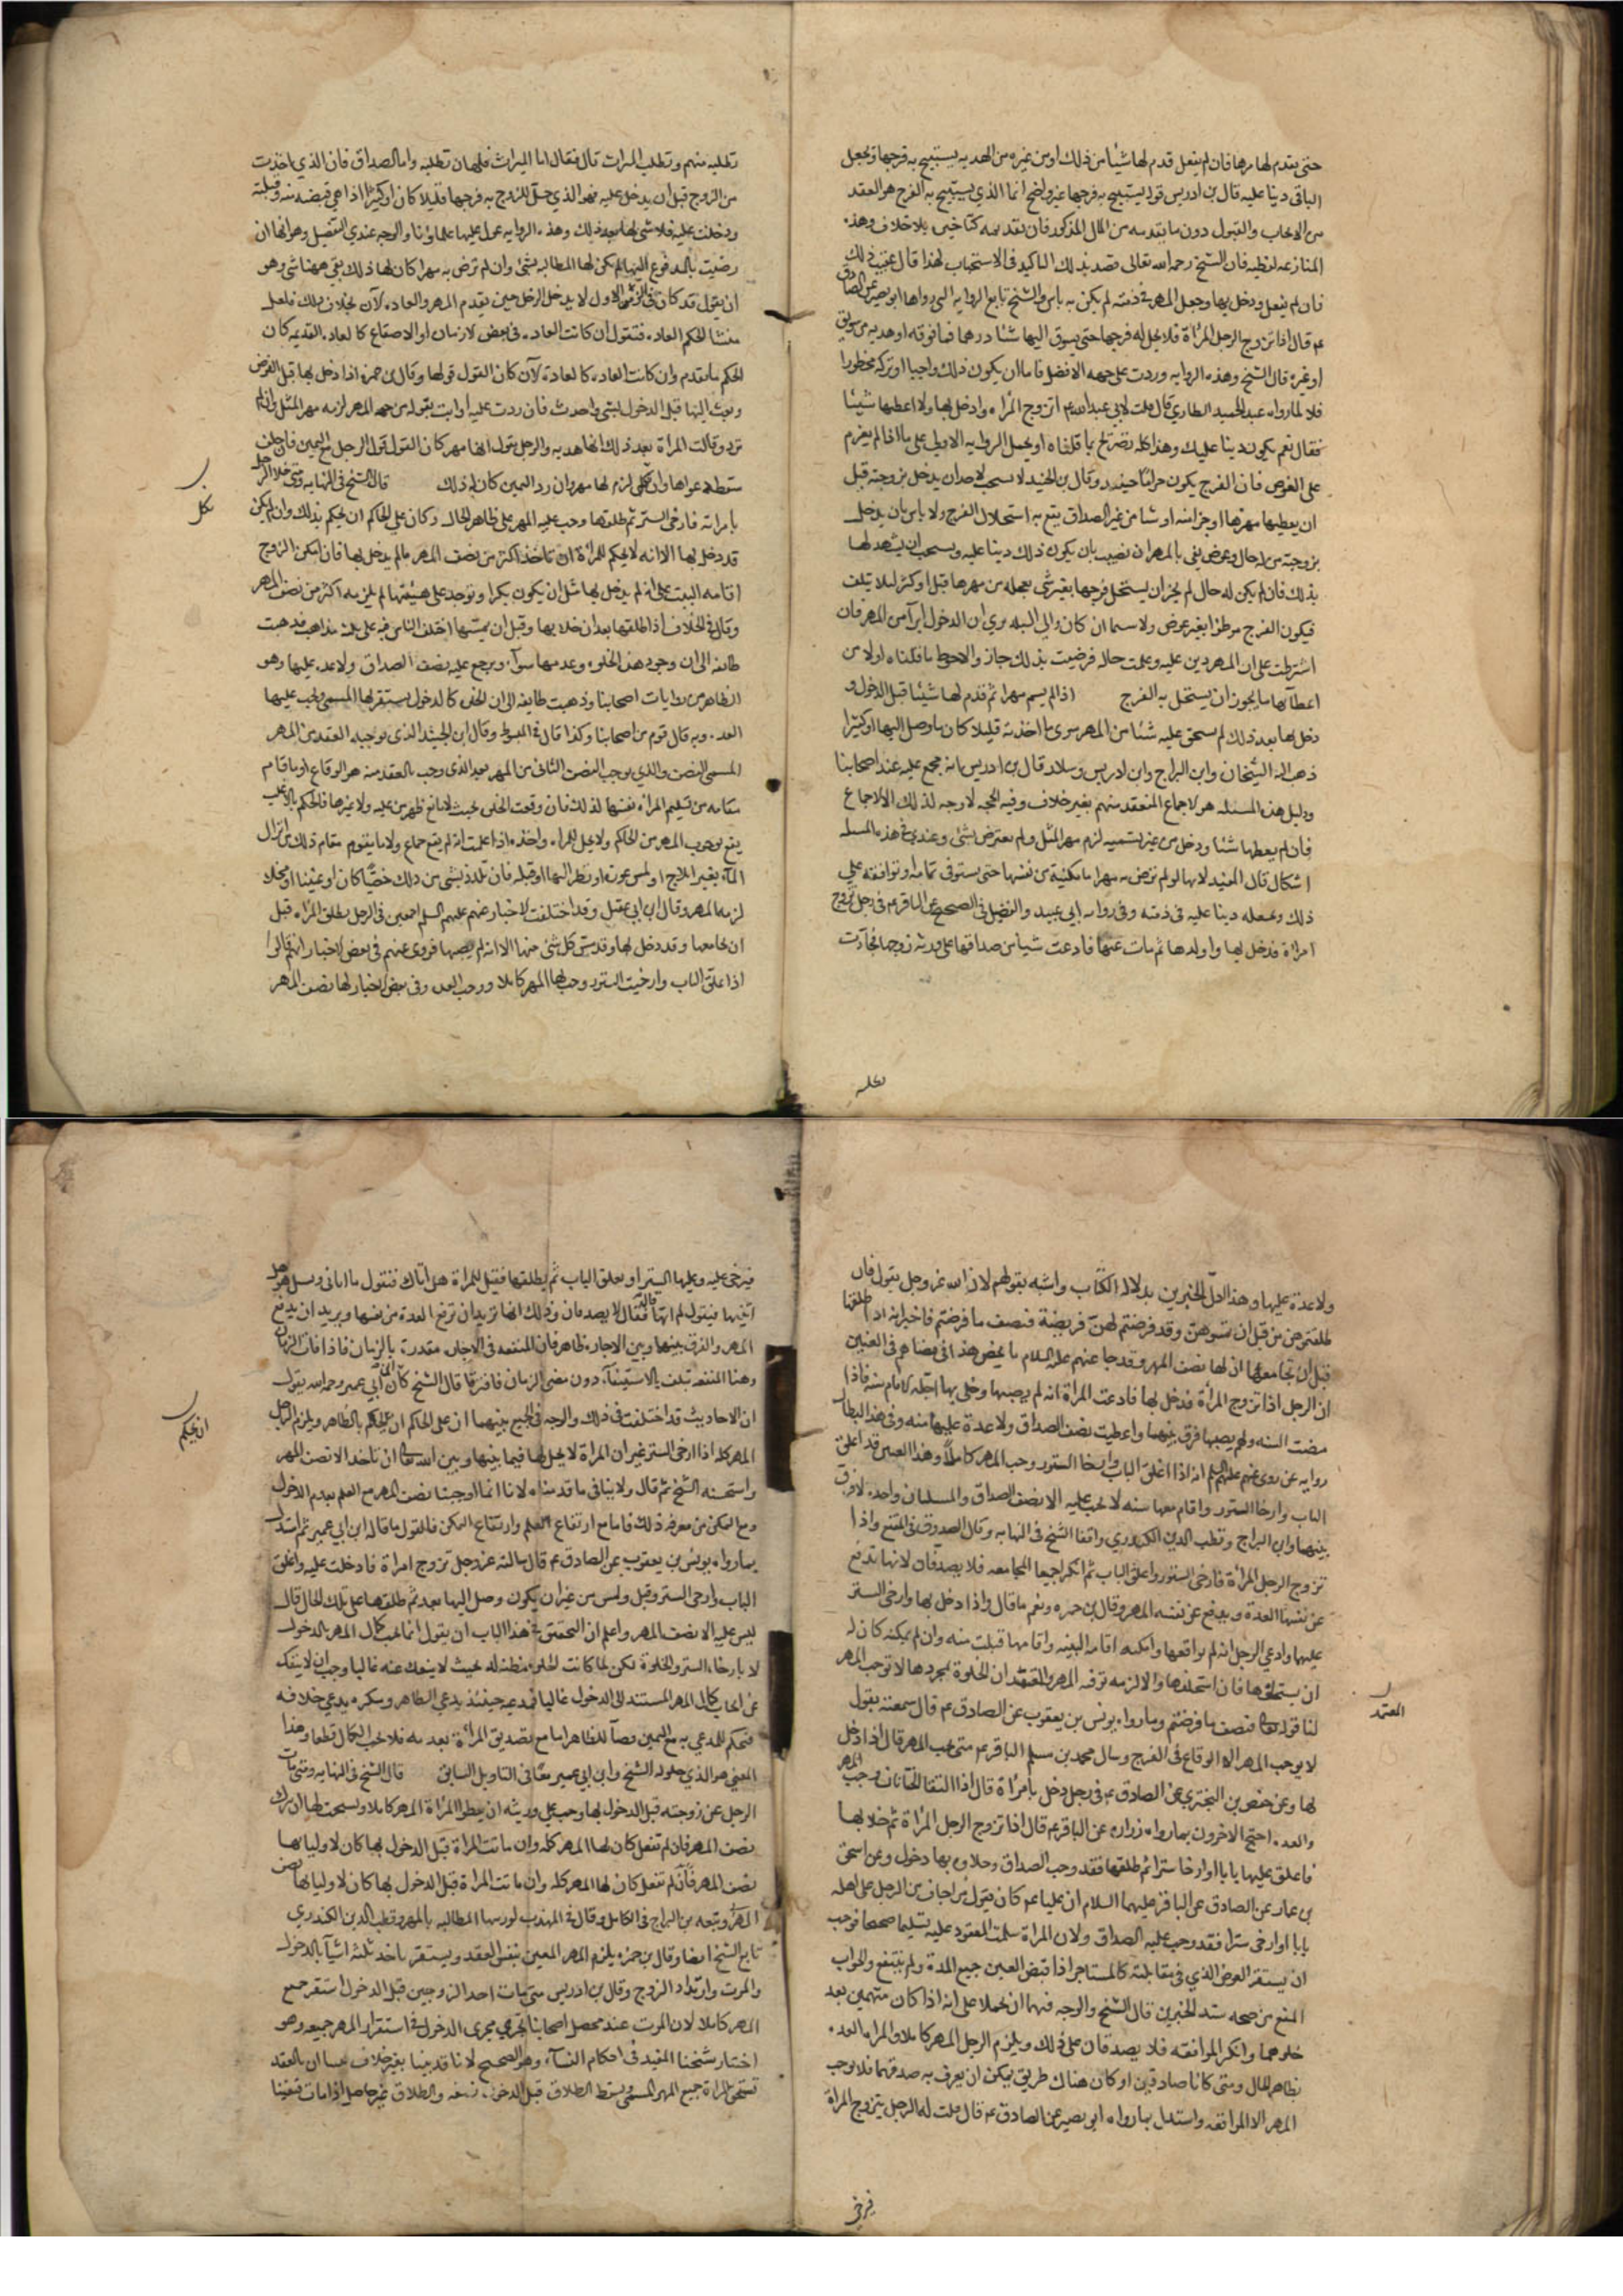 حتى يقدم لها مهرها فان لم يفعل قدم لها شيئا من ذلك او من غيره من الهديه يستبيح به فرجها ويجعل
الباقى دينا عليه قال بن ادريس قوله يستبيح به فرجها غير واضح انما الذي يستبيح به الفرج هو العقد
من الايجاب والقبول دون ما يقدمه من المال المذكور فان تقديمه كتاخيره بلا خلاف وهذه
المنازعه لفظيه فان الشيخ رحمه الله تعالى قصد بذلك التاكيد فى الاستحباب لهذا قال عقيب ذلك
فان لم يفعل ودخل بها وجعل المهر فى ذمته لم يكن به باس والشيخ تابع الروايه التى رواها ابو بصير عن الصادق
عم قال اذا تزوج الرجل المرأة فلا يحل له فرجها حتى يسوق اليها شيئا درهما فما فوقه او هديه من سويق
او غيره قال الشيخ وهذه الروايه وردت على جهه الافضل فاما ان يكون ذلك واجبا او تركه محظورا
فلا لما رواه عبد الحميد الطاري قال قلت لابي عبد الله عم اتزوج المراه وادخل بها ولا اعطيها شيئا
فقال نعم يكون دينا عليك وهذا كله تصريح بما قلناه او يحمل الروايه الاولى على ما اذا لم يعزم
على العوض فان الفرج يكون حراما حينئذ وقال بن الجنيد لا يستحب لاحد ان يدخل بزوجته قبل
ان يعطيها مهرها او جزا منه او شيا من غير الصداق يقع به استحلال الفرج ولا باس بان يدخل
بزوجته من له حال وعرض يفى بالمهر ان نصيب بان يكون ذلك دينا عليه ويستحب ان يشهد لها
بذلك فان لم يكن له حال لم يجز ان يستحل فرجها بغير شى يعجله من مهرها قبل او كثر ليلا يتلف
فيكون الفرج موطوا بغير عوض ولا سيما ان كان والى البلد يرى ان الدخول ابرآ من المهر فان
اشترطت على ان المهر دين عليه وعلمت حاله فرضيت بذلك جاز والاحوط ما قلناه اولا من
اعطآئها ما يجوز ان يستحل به الفرج اذا لم يسم مهرا ثم قدم لها شيئا قبل الدخول و
دخل بها بعد ذلك لم يستحق عليه شيئا من المهر سوى ما اخذته قليلا كان ما وصل اليها او كثيرا
ذهب اليه الشيخان وابن البراج وابن ادريس وسلار قال بن ادريس انه مجمع عليه عند اصحابنا
ودليل هذه المسئله هو الاجماع المنعقد منهم بغير خلاف وفيه الحجه لا وجه لذلك الا الاجماع
فان لم يعطها شيئا ودخل من غير تسميه لزم مهر المثل ولم يعترض بشى وعندى فى هذه المسله
اشكال قال المفيد لانها لو لم ترض به مهرا ما مكنته من نفسها حتى يستوفى تمامه او توافقه على
ذلك وتجعله دينا عليه فى ذمته وفى روايه ابى عبيد والفضل فى الصحيح عن الباقر عم فى رجل تزوج
امراة فدخل بها واولدها ثم مات عنها فادعت شيا من صداقها على ورثه زوجها فجآءت
تطلبه
تطلبه منهم وتطلب الميراث قال فقال اما الميراث فلها ان تطلبه واما الصداق فان الذي اخذت
من الزوج قبل ان يدخل عليه فهو الذي حل للزوج به فرجها قليلا كان او كثيرا اذا هى قبضه منه وقبلته
ودخلت عليه فلا شى لها بعد ذلك وهذه الروايه عول عليها علماؤنا والوجه عندي التفصيل وهو انها ان
رضيت بالمدفوع اليها لم يكن لها المطالبه بشئ وان لم ترض به مهرا كان لها ذلك بقى ههنا شى وهو
ان يقول قد كان فى الزمن الاول لا يدخل الرجل حين يقدم المهر والعاده الآن بخلاف ذلك فلعل
منشا الحكم العاده فنقول ان كانت العاده فى بعض الازمان او الاصقاع كالعاده القديمه كان
الحكم ما تقدم وان كانت العاده كالعاده الآن كان القول قولها وقال بن حمزه اذا دخل بها قبل الفرض
وبعث اليها قبل الدخول بشئ واحدث فان ردت عليه او ابت بقوله من جهه المهر لزمه مهر المثل وان لم
ترد وقالت المراة بعد ذلك انها هديه والرجل يقول انها مهر كان القول قول الرجل مع اليمين فان حلف
سقط دعواها وان نكل لزم لها مهر وان رد اليمين كان له ذلك قال الشيخ فى النهايه ومتى خلا الرجل
بامراته فارخى الستر ثم طلقها وجب عليه المهر على ظاهر الحال وكان على الحاكم ان يحكم بذلك وان لم يكن
قد دخل بها الا انه لا يحكم للمرأة ان تاخذ اكثر من نصف المهر ما لم يدخل بها فان امكن الزوج
اقامه البينه على انه لم يدخل بها مثل ان يكون بكرا وتوجد على هيئتها لم يلزمه اكثر من نصف المهر
وقال فى الخلاف اذا طلقها بعد ان خلا بها وقبل ان يمسها اختلف الناس فيه على ثلثه مذاهب فذهبت
طائفه الى ان وجود هذه الخلوه وعدمها سوآء ويرجع عليه نصف الصداق ولا عده عليها وهو
الظاهر من روايات اصحابنا وذهبت طايفه الى ان الخلوه كالدخول يستقر لها المسمى وتجب عليها
العده وبه قال قوم من اصحابنا وكذا قال فى المبسوط وقال ابن الجنيد الذى يوجبه العقد من المهر
المسمى النصف والذي يوجب النصف الثانى من المهر بعد الذى وجب بالعقد منه هو الوقاع او ما قام
مقامه من تسليم المراه نفسها لذلك فان وقعت الخلوه بحيث لا مانع ظهر من عليه ولا غيرها فالحكم بالاغلب
يقع بوجوب المهر من الحاكم ولا يحل للمراه اخذه اذا علمت انه لم يقع جماع ولا ما يقوم مقام ذلك من انزال
المآء بغير ايلاج او لمس عورة او نظر اليها او قبله فان تلذذ بشى من ذلك خصيا كان او عنينا او فحلا
لزمه المهر وقال ابن ابى عقيل وقد اختلفت الاخبار عنهم عليهم السلم اجمعين فى الرجل يطلق المراه قبل
ان يجامعها وقد دخل بها وقد مس كل شئ منها الا انه لم يصبها فروى عنهم فى بعض الاخبار انهم قالوا
اذا غلق الباب وارخيت الستور وجب لها المهر كاملا ووجب العده وفى بعض الاخبار لها نصف المهر
نكل
ولا عدة عليها وهذا ادل الخبرين بدلاله الكتاب واشبه بقولهم لان الله عز وجل يقول فان
طلقتموهن من قبل ان تمسوهن وقد فرضتم لهن فريضة فنصف ما فرضتم فاخبر انه اذا طلقها
قبل ان يجامعها ان لها نصف المهر وقد جا عنهم عليهم السلام ما يخص هذا فى قضاهم فى العنين
ان الرجل اذا تزوج المرأة فدخل بها فادعت المراة انه لم يصبها وخلى بها اجله الامام سنه فاذا
مضت السنه ولم يصبها فرق بينهما واعطيت نصف الصداق ولا عدة عليها منه وفى هذا ابطال
روايه من روى عنهم عليهم السلم انه اذا اغلق الباب وارخا الستور وجب المهر كاملا وهذا العنين قد اغلق
الباب وارخا الستور واقام معها سنه لا يجب عليه الا نصف الصداق والمسلتان واحده لا فرق
بينهما وابن البراج وقطب الدين الكيدرى وافقا الشيخ فى النهايه وقال الصدوق فى المقنع واذا
تزوج الرجل المرأة فارخى الستور واغلق الباب ثم انكرا جميعا المجامعه فلا يصدقان لانها تدفع
عن نفسها العدة ويدفع عن نفسه المهر وقال بن حمزه ونعم ما قال واذا دخل بها وارخى الستر
عليها وادعى الرجل انه لم يواقعها وامكنه اقامه البينه واقامها قبلت منه وان لم يمكنه كان له
ان يستحلفها فان استحلفها والا لزمه توفيه المهر والمعتمد ان الخلوة بمجردها لا توجب المهر
لنا قوله تعالى فنصف ما فرضتم وما رواه يونس بن يعقوب عن الصادق عم قال سمعته يقول
لا يوجب المهر الا الوقاع فى الفرج وسال محمد بن مسلم الباقر عم متى يجب المهر قال اذا دخل
بها وعن حفص بن البخترى عن الصادق عم فى رجل دخل بامرأة قال اذا التقا الختانان وجب المهر
والعده احتج الاخرون بما رواه زراره عن الباقر عم قال اذا تزوج الرجل المرأة ثم خلا بها
فاغلق عليها بابا او ارخا سترا ثم طلقها فقد وجب الصداق وخلاوه بها دخول وعن اسحق
بن عمار عن الصادق عن الباقر عليهما السلام ان عليا عم كان يقول من اجاف من الرجل على اهله
بابا او ارخى سترا فقد وجب عليه الصداق ولان المراة سلمت المعقود عليه تسليما صحيحا فوجب
ان يستقر العوض الذي فى مقابلته كالمستاجر اذا قبض العين جميع المدة ولم ينتفع والجواب
المنع من صحه سند الخبرين قال الشيخ والوجه فيهما ان نحملها على انه اذا كان متهمين بعد
خلوهما وانكر المواقعه فلا يصدقان على ذلك ويلزم الرجل المهر كاملا والمراه العده
بظاهر الحال ومتى كانا صادقين او كان هناك طريق يمكن ان يعرف به صدقهما فلا يوجب
المهر الا المواقعه واستدل بما رواه ابو بصير عن الصادق عم قال قلت له الرجل يتزوج المراة
المعتمد
فيرخى
فيرخى عليه وعليها الستر او يغلق الباب ثم يطلقها فقيل للمراة هل اتاك فتقول ما اتانى ويسل هو هل
اتيتها فيقول لم اتها فقال لا يصدقان وذلك انها تريد ان ترفع العدة عن نفسها ويريد ان يدفع
المهر والفرق بينها وبين الاجاره ظاهر فان المنفعه فى الاجاره مقدرة بالزمان فاذا فات الزمان
وهنا المنفعه تتلف بالاستيفآء دون مضى الزمان فافترقا قال الشيخ كان ابن ابي عمير رحمه الله يقول
ان الاحاديث قد اختلفت فى ذلك والوجه فى الجمع بينهما ان على الحاكم ان يحكم بالظاهر ويلزم الرجل
المهر كله اذا ارخى الستر غير ان المراة لا يحل لها فيما بينها وبين الله تعالى ان تاخذ الا نصف المهر
واستحسنه الشيخ ثم قال ولا ينافى ما قدمناه لانا انما اوجبنا نصف المهر مع العلم بعدم الدخول
ومع التمكن من معرفه ذلك فاما مع ارتفاع العلم وارتفاع التمكن فالقول ما قاله ابن ابى عمير ثم استدل
بما رواه يونس بن يعقوب عن الصادق عم قال سالته عن رجل تزوج امراة فادخلت عليه واغلق
الباب وارخى الستر وقبل ولمس من غير ان يكون وصل اليها بعد ثم طلقها على تلك الحال قال
ليس عليه الا نصف المهر واعلم ان التحقيق فى هذا الباب ان يقول انما يجب كمال المهر بالدخول
لا بارخاء الستر والخلوة لكن لما كانت الخلوه مظنه له بحيث لا ينفك عنه غالبا وجب ان لا ينفك
عن ايجاب كمال المهر المستند الى الدخول غالبا فمدعيه حينئذ يدعى الظاهر ومنكره يدعى خلافه
فيحكم للمدعى به مع اليمين قضآ للظاهر اما مع تصديق المراة بعدمه فلا يجب الكمال قطعا وهذا
المعنى هو الذي حاوله الشيخ وابن ابى عمير معا فى التاويل السابق قال الشيخ فى النهايه ومتى مات
الرجل عن زوجته قبل الدخول بها وجب على ورثته ان يعطوا المرأة المهر كاملا ويستحب لها ان تترك
نصف المهر فان لم تفعل كان لها المهر كله وان ماتت المراة قبل الدخول بها كان لاوليايها
نصف المهر فان لم تفعل كان لها المهر كله وان ماتت المراة قبل الدخول بها كان لاوليايها نصف
المهر وتبعه بن البراج فى الكامل وقال فى المهذب لورثتها المطالبه بالمهر وقطب الدين الكيدرى
تابع الشيخ ايضا وقال بن حمزه يلزم المهر المعين بنفس العقد ويستقر باحد ثلثه اشيآ بالدخول
والموت وارتداد الزوج وقال بن ادريس متى مات احد الزوجين قبل الدخول استقر جميع
المهر كاملا لان الموت عند محصلى اصحابنا يجرى مجرى الدخول فى استقرار المهر جميعه وهو
اختيار شيخنا المفيد فى احكام النسآء وهو الصحيح لانا قد بينا بغير خلاف بيننا ان بالعقد
تستحق المراة جميع المهر المسمى ويسقط الطلاق قبل الدخول نصفه والطلاق غير حاصل اذا مات فبقينا
ان يحكم